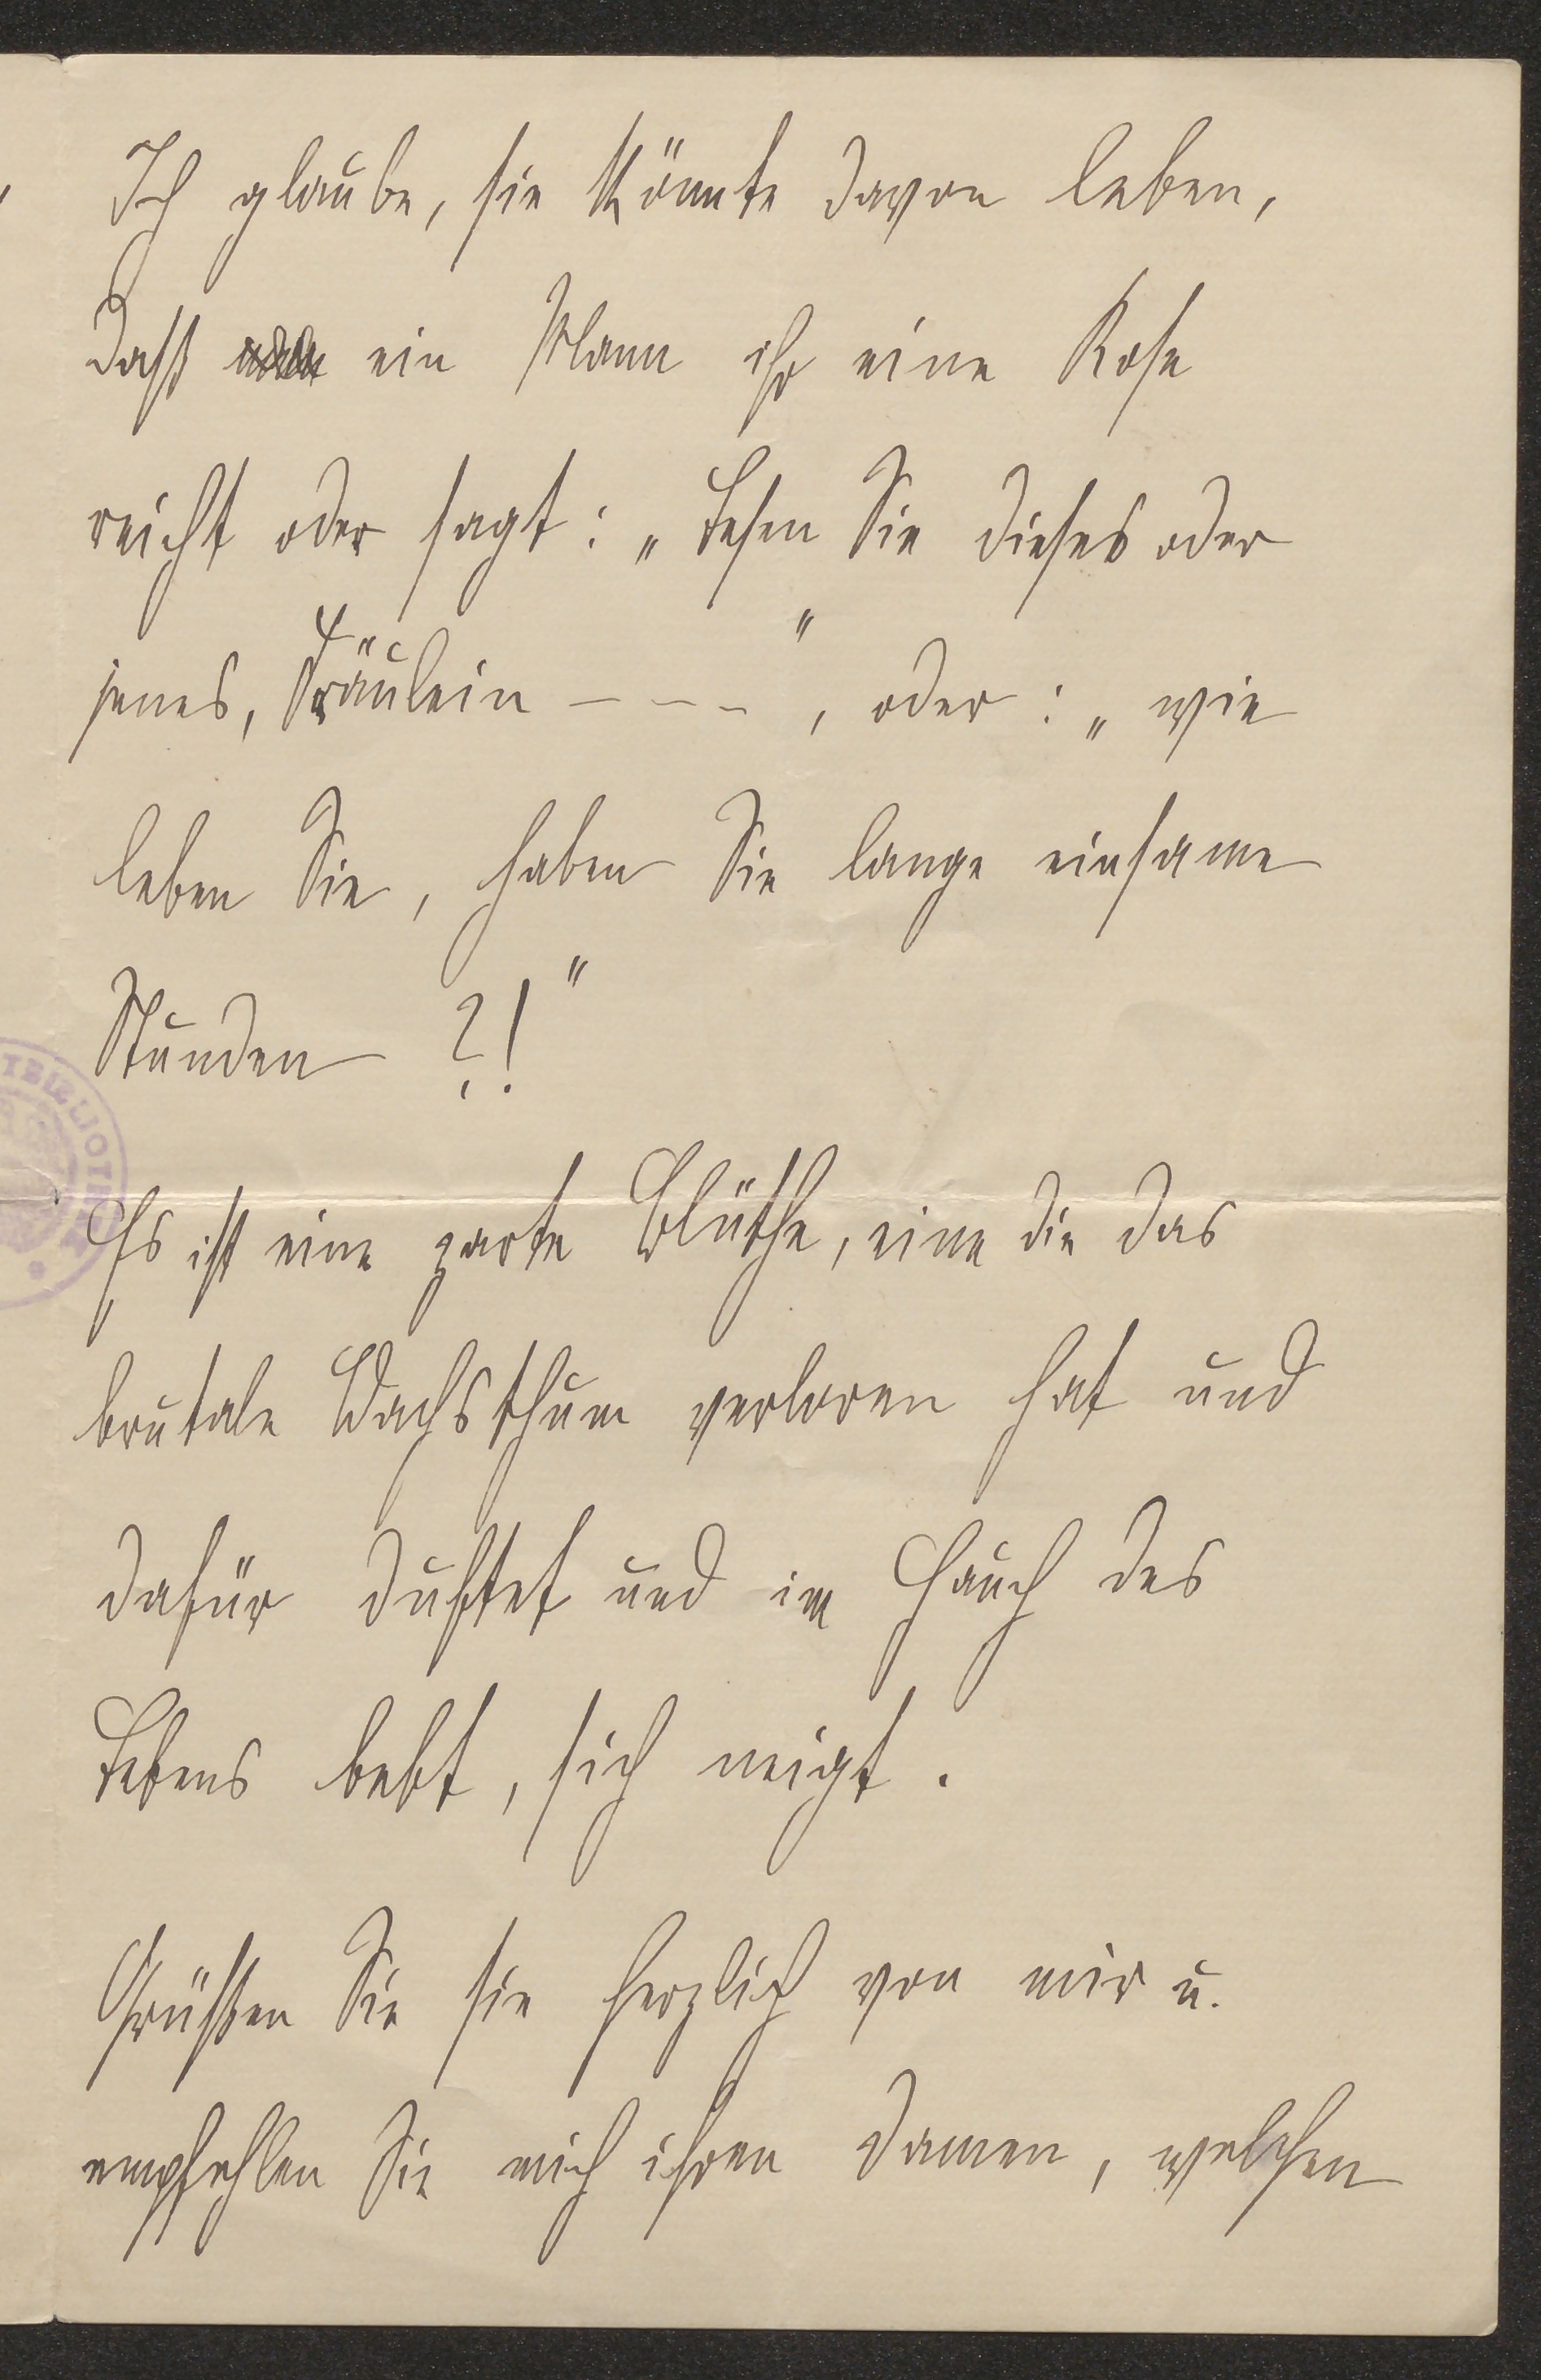 Ich glaube, sie könnte davon leben,
dass ein Mann ihr eine Rose
reicht oder sagt: „Lesen Sie dieses oder
jenes, Fräulein – – –“, oder: „wie
leben Sie, haben Sie lange einsame
Stunden?!“
Es ist eine zarte Blüthe, eine die das
brutale Wachsthum verloren hat und
dafür duftet und im Hauch des
Lebens bebt, sich neigt.
Grüßen Sie sie herzlich von mir u.
empfehlen Sie mich ihren Damen, welchen